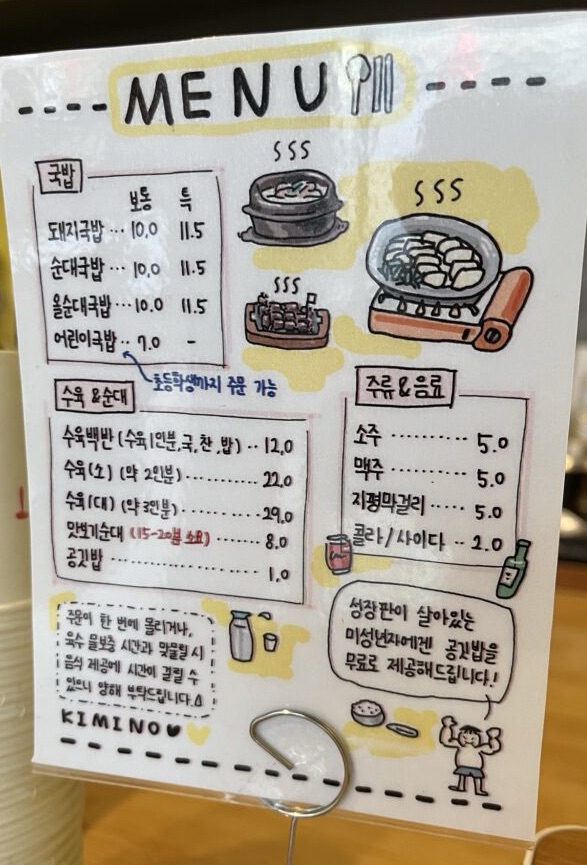 MENU
국밥
보통 특
돼지국밥 ··· 10.0 11.5
순대국밥 ··· 10.0 11.5
올순대국밥 ··· 10.0 11.5
어린이국밥 ·· 7.0 -
초등학생까지 주문 가능
수육 & 순대
수육백반 (수육1인분,국,찬,밥) ·· 12.0
수육(소) (약 2인분) ········ 22.0
수육(대) (약 3인분) ········ 29.0
맛보기순대 (15-20분 소요) ······ 8.0
공깃밥 ················ 1.0
주류 & 음료
소주 ·········· 5.0
맥주 ·········· 5.0
지평막걸리 ······ 5.0
콜라/사이다 ·· 2.0
주문이 한 번에 몰리거나,
육수 물보충 시간과 맞물릴 시
음식 제공에 시간이 걸릴 수
있으니 양해 부탁드립니다.
KIMINO
성장판이 살아있는
미성년자에겐 공깃밥을
무료로 제공해드립니다!